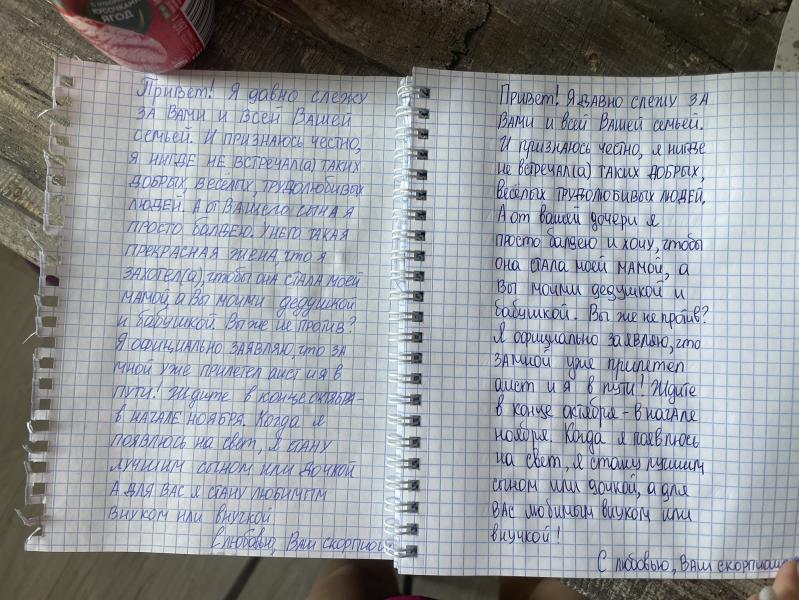 КУСОЧКАМИ
ЯГОД
Привет! Я давно слежу
за Вами и всей Вашей
семьей. И признаюсь честно,
я нигде не встречал(а) таких
добрых, весёлых, трудолюбивых
людей. А от Вашего сына я
просто балдею. У него такая
прекрасная жена, что я
захотел(а), чтобы она стала моей
мамой, а Вы моими дедушкой
и бабушкой. Вы же не против?
Я официально заявляю, что за
мной уже прилетел аист и я в
пути! Ждите в конце октября-
в начале ноября. Когда я
появлюсь на свет, я стану
лучшим сыном или дочкой
А для вас я стану любимым
внуком или внучкой
С любовью, Ваш скорпиош
Привет! Я давно слежу за
Вами и всей Вашей семьей.
И признаюсь честно, я нигде
не встречал(а) таких добрых,
весёлых трудолюбивых людей.
А от вашей дочери я
просто балдею и хочу, чтобы
она стала моей мамой, а
Вы моими дедушкой и
бабушкой. Вы же не против?
Я официально заявляю, что
за мной уже прилетел
аист и я в пути! Ждите
в конце октября - в начале
ноября. Когда я появлюсь
на свет, я стану лучшим
сыном или дочкой, а для
вас любимым внуком или
внучкой!
С любовью, Ваш скорпиош